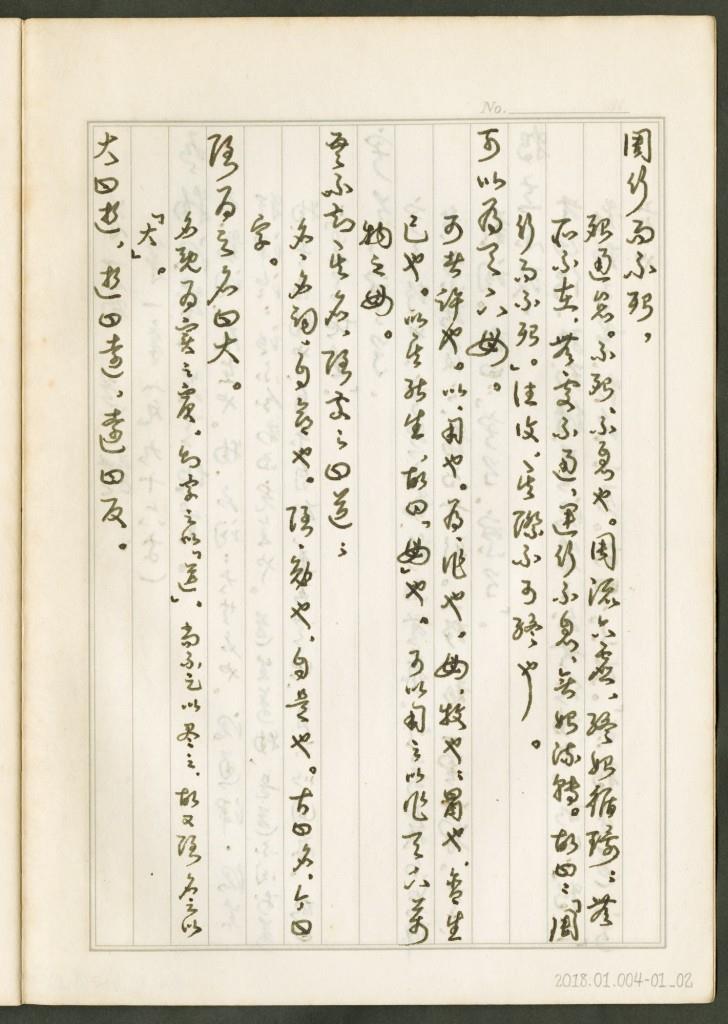 No.
周行而不殆，
殆通怠。不殆，不怠也。周流六虛，終始循環；無
所不在，無處不通，運行不息，無始流轉。故曰：「周
行而不殆。」往復，其際不可終也。
可以為天下母。
可者，許也。以，用也。為，作也。母，牧也；冒也，含生
己也。以其能生，故曰「母」也。可以用之以作天下萬
物之母。
吾不知其名，強字之曰道；
名，名詞，自命也。強，勉也，自是也。古曰名，今曰
字。
強為之名曰大。
名既為實之賓，初字之以「道」，尚不足以盡之，故又強名之以
「大」。
大曰逝，逝曰遠，遠曰反。
2018.01.004-01_02